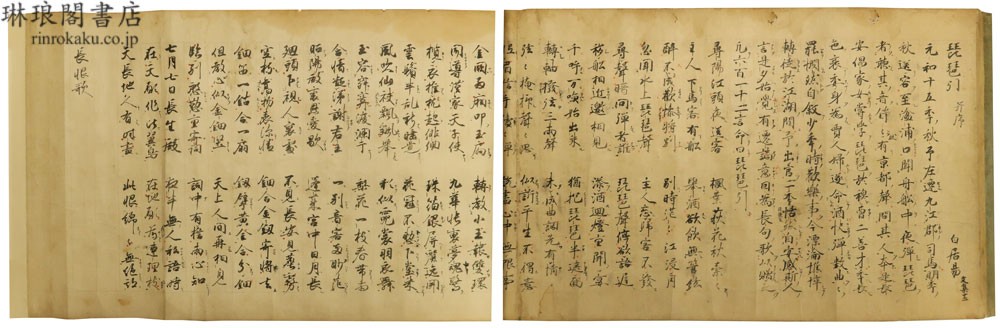 琳琅閣書店
rinrokaku.co.jp
琵琶引 并序 白居易
元和十五年秋予左遷九江郡司馬明年
秋送客至湓浦口聞舟船中夜弾琵琶
者聴其音錚々有京都聲問其人本是長
安倡家女嘗学琵琶於穆曹二善才年長
色衰委身為賈人婦遂命酒快弾数曲々
罷憫然自叙少年時歓樂事今漂淪憔悴
轉徙於江湖間予出官二年恬然自安感斯人
言是夕始覚有遷謫意因為長句歌以贈之
凡六百一十二言命曰琵琶引
潯陽江頭夜送客 楓葉荻花秋索々
主人下馬客有船 舉酒欲飲無管絃
醉不成歡慘將別 別時茫々江浸月
忽聞水上琵琶聲 主人忘歸客不發
尋聲暗問弾者誰 琵琶聲停欲語遅
移船相近邀相見 添酒迴燈重開宴
千呼万喚始出来 猶抱琵琶半遮面
轉軸撥絃三兩聲 未成曲調先有情
絃々掩抑聲々思 似訴平生不得意
金闕西廂叩玉扃 轉教小玉報雙成
聞道漢家天子使 九華帳裏夢魂驚
攬衣推枕起徘徊 珠箔銀屏邐迤開
雲鬢半乱新睡覚 花冠不整下堂来
風吹仙袂飄飄舉 猶似霓裳羽衣舞
玉容寂寞涙瀾干 梨花一枝春帯雨
含情凝睇謝君王 一別音容兩眇茫
昭陽殿裏恩愛歇 蓬莱宮中日月長
迴頭下視人寰處 不見長安見塵霧
空将舊物表深情 鈿合金釵寄将去
釵留一股合一扇 釵擘黄金合分鈿
但教心似金鈿堅 天上人間再相見
臨別殷懃重寄詞 詞中有誓兩心知
七月七日長生殿 夜半無人私語時
在天願作比翼鳥 在地願為連理枝
天長地久有時盡 此恨綿々無絶期
長恨歌